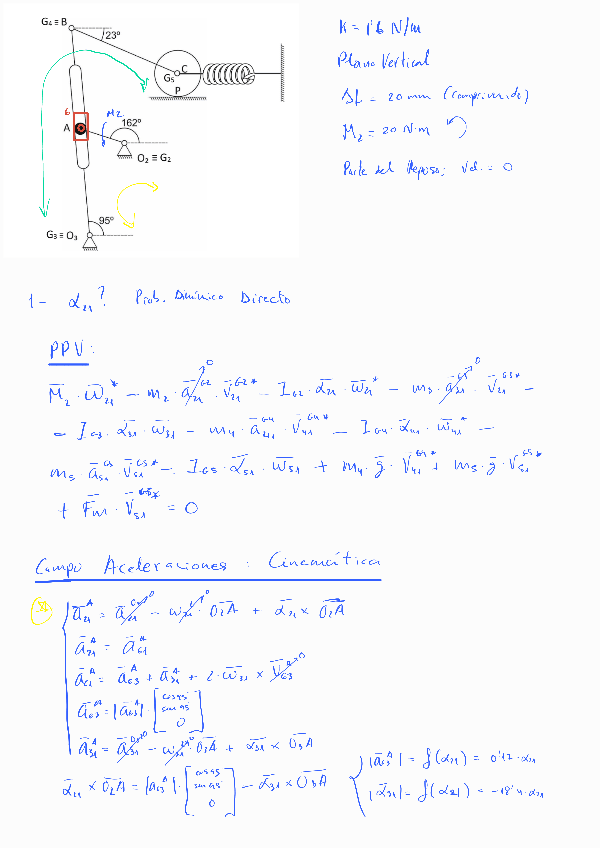 G₄ ≡ B
23°
C
G₅
P
6
A
M2
162°
O₂ ≡ G₂
95°
G₃ ≡ O₃
K = 1'6 N/m
Plano Vertical
Δl = 20 mm (comprimido)
M₂ = 20 N·m
Parte del Reposo; Vel. = 0
1- α₂₁? Prob. Dinámico Directo
PPV:
M̄₂·ω̄₂₁* - m₂·ā₂₁^G2·v̄₂₁^G2* - I_G2·ᾱ₂₁·ω̄₂₁* - m₃·ā₃₁^G3·v̄₃₁^G3* -
- I_G3·ᾱ₃₁·ω̄₃₁ - m₄·ā₄₁^G4·v̄₄₁^G4* - I_G4·ᾱ₄₁·ω̄₄₁* -
m₅·ā₅₁^G5·v̄₅₁^G5* - I_G5·ᾱ₅₁·ω̄₅₁ + m₄·ḡ·v̄₄₁^G4* + m₅·ḡ·v̄₅₁^G5*
+ F̄m·v̄₅₁^G5* = 0
Campo Aceleraciones: Cinemática
ā₂₁^A = ā₂₁^O2 - ω₂₁²·O₂A + ᾱ₂₁ × O₂A
ā₂₁^A = ā₆₁^A
ā₆₁^A = ā₆₃^A + ā₃₁^A + 2·ω̄₃₁ × v̄₆₃^A
ā₆₃^A = |ā₆₃^A|·[cos 95
sin 95
0]
ā₃₁^A = ā₃₁^O3 - ω₃₁²·O₃A + ᾱ₃₁ × O₃A
ᾱ₂₁ × O₂A = |ā₆₃^A|·[cos 95
sin 95
0] - ᾱ₃₁ × O₃A
|ā₆₃^A| = f(α₂₁) = 0'12·α₂₁
|ᾱ₃₁| = f(α₂₁) = -18'4·α₂₁